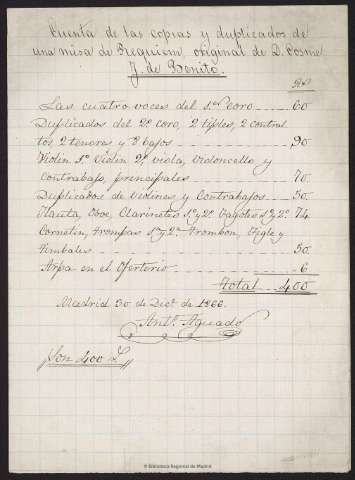 Cuenta de las copias y duplicados de
una misa de Requiem, original de D. Cosme
J. de Benito.
Las cuatro voces del 1er Coro 60
Duplicados del 2º coro, 2 tiples, 2 contral
tos, 2 tenores y 2 bajos 90
Violin 1º Violin 2º, viola, violoncello y
contrabajo, principales 70
Duplicados de violines y Contrabajos 50
Flauta, Oboe, Clarinetes 1º y 2º Fagotes 1º y 2º 74
Cornetin, Trompas 1ª y 2ª Trombon, Figle y
Timbales 50
Arpa en el Ofertorio 6
Total 400
Madrid 30 de Dicº de 1866.
Antº Aguado
Son 400 r.
© Biblioteca Regional de Madrid